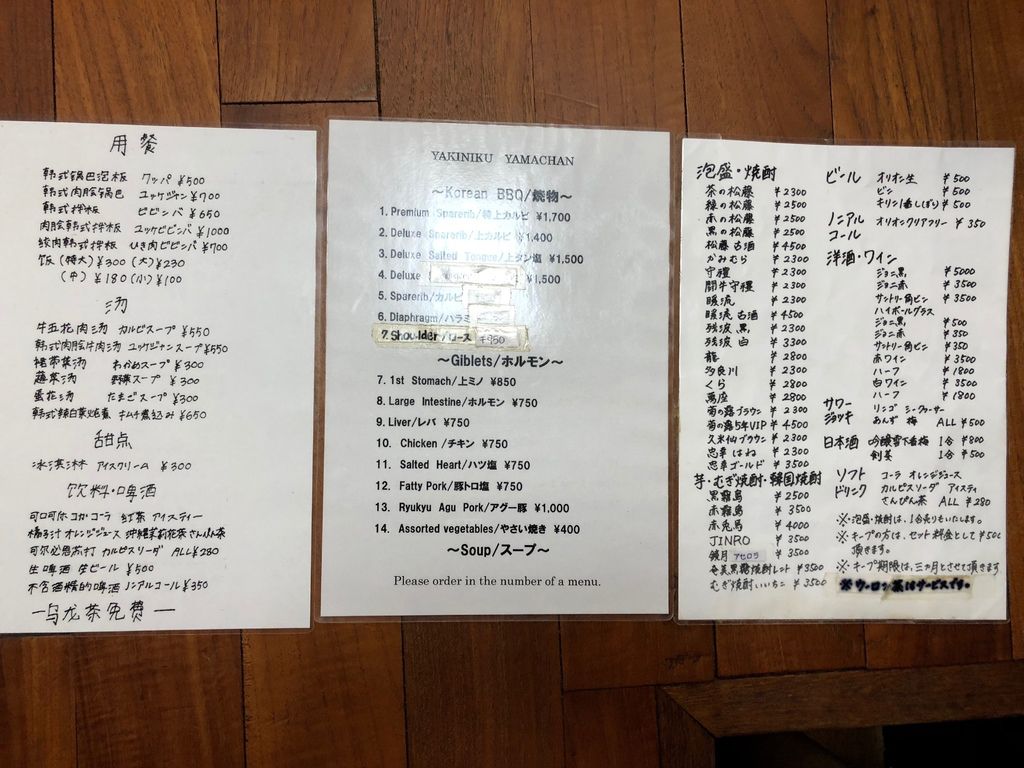 用餐
韩式锅巴泡板 クッパ ¥500
韩式肉脍锅巴 ユッケジャン ¥700
韩式拌板 ビビンバ ¥650
肉脍韩式拌板 ユッケビビンバ ¥1000
绞肉韩式拌板 ひき肉ビビンバ ¥700
饭 (特大) ¥300 (大) ¥230
(中) ¥180 (小) ¥100
汤
牛五花肉汤 カルビスープ ¥550
韩式肉脍牛肉汤 ユッケジャンスープ ¥550
裙带菜汤 わかめスープ ¥300
蔬菜汤 野菜スープ ¥300
蛋花汤 たまごスープ ¥300
韩式辣白菜火危番 キムチ煮込み ¥650
甜点
冰淇淋 アイスクリーム ¥300
饮料·啤酒
可口可乐 コカ·コーラ 红茶 アイスティー
橘子汁 オレンジジュース 沖縄茉莉花茶 さんぴん茶
可尔必思苏打 カルピスソーダ ALL ¥280
生啤酒 生ビール ¥500
不含酒精的啤酒 ノンアルコール ¥350
—乌龙茶免费—
YAKINIKU YAMACHAN
～Korean BBQ/焼物～
1. Premium Sparerib/特上カルビ ¥1,700
2. Deluxe Sparerib/上カルビ ¥1,400
3. Deluxe Salted Tongue/上タン塩 ¥1,500
4. Deluxe
5. Sparerib/カルビ
6. Diaphragm/ハラミ
7. Shoulder/ロース ¥950
～Giblets/ホルモン～
7. 1st Stomach/上ミノ ¥850
8. Large Intestine/ホルモン ¥750
9. Liver/レバ ¥750
10. Chicken /チキン ¥750
11. Salted Heart/ハツ塩 ¥750
12. Fatty Pork/豚トロ塩 ¥750
13. Ryukyu Agu Pork/アグー豚 ¥1,000
14. Assorted vegetables/やさい焼き ¥400
～Soup/スープ～
Please order in the number of a menu.
泡盛·焼酎
茶の松藤 ¥2300
緑の松藤 ¥2500
赤の松藤 ¥2500
黒の松藤 ¥2500
松藤 古酒 ¥4500
かみむら ¥2300
守禮 ¥2300
闘牛守禮 ¥2300
暖流 ¥2300
暖流 古酒 ¥4500
残波 黒 ¥2300
残波 白 ¥3300
龍 ¥2800
多良川 ¥2300
くら ¥2800
萬座 ¥2800
菊の露 ブラウン ¥2300
菊の露5年VIP ¥4500
久米仙 ブラウン ¥2300
忠孝 はね ¥2300
忠孝 ゴールド ¥3500
芋·むぎ焼酎·韓国焼酎
黒霧島 ¥2500
赤霧島 ¥3500
赤兎馬 ¥4000
JINRO ¥3500
鏡月 アセロラ ¥3500
奄美黒糖焼酎レント ¥3500
むぎ焼酎いいちこ ¥3500
ビール オリオン生 ¥500
ビン ¥500
キリン1番しぼり ¥500
ノンアルコール オリオンクリアフリー ¥350
洋酒·ワイン
ジョニ黒 ¥5000
ジョニ赤 ¥3500
サントリー角ビン ¥3500
ハイボールグラス
ジョニ黒 ¥500
ジョニ赤 ¥350
サントリー角ビン ¥350
赤ワイン ¥3500
ハーフ ¥1800
白ワイン ¥3500
ハーフ ¥1800
サワージョッキ リンゴ シークァーサー
あんず 梅 ALL ¥500
日本酒 吟醸雪下香梅 1合 ¥800
剣菱 1合 ¥500
ソフトドリンク コーラ オレンジジュース
カルピスソーダ アイスティ
さんぴん茶 ALL ¥280
※泡盛·焼酎は、1合売りもいたします。
※キープの方は、セット料金として¥500
頂きます。
※キープ期限は、三ヵ月とさせて頂きます
※ウーロン茶はサービスです。